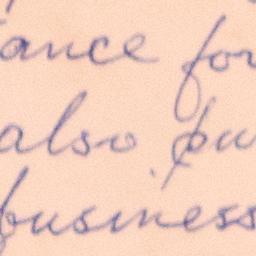 ance for
also pu
business